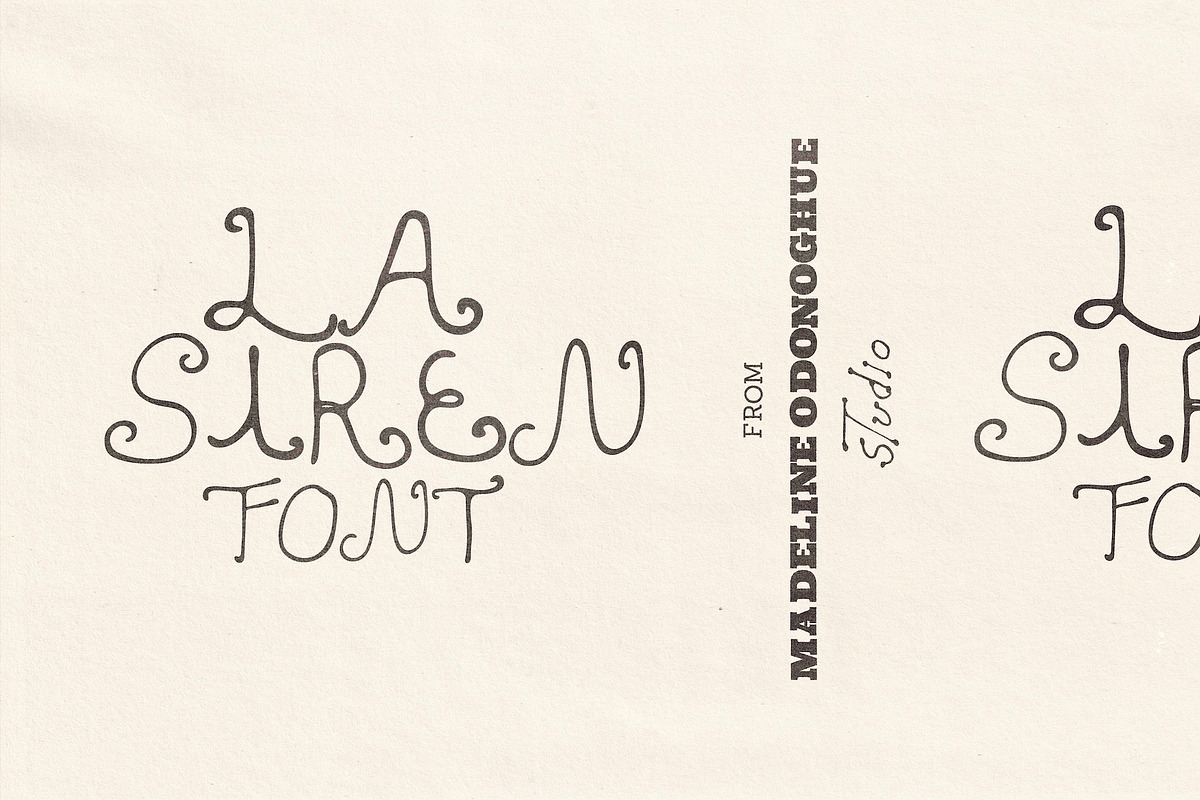 LA
SIREN
FONT
FROM
MADELINE ODONOGHUE
studio
L
SIR
FO